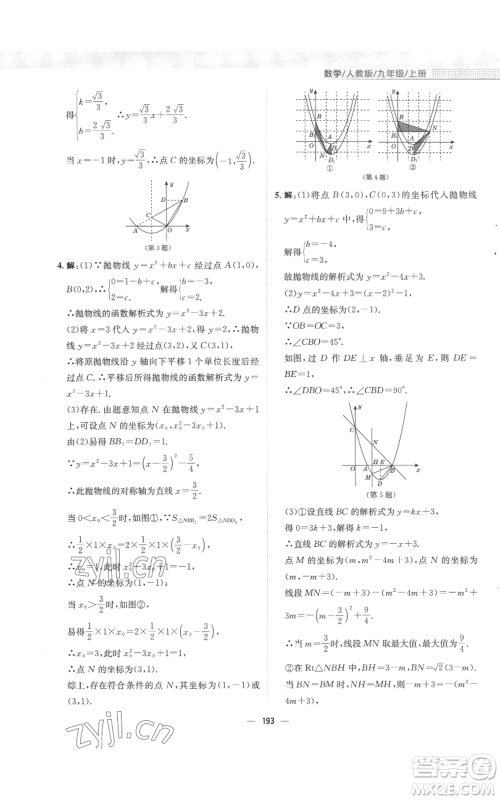 数学/人教版/九年级/上册
得{k=√3/3, b=2√3/3. ∴y=√3/3 x+2√3/3.
当x=-1时,y=√3/3,∴点C的坐标为(-1,√3/3).
(第3题)
4.解:(1)∵抛物线y=x²+bx+c经过点A(1,0),
B(0,2),∴{0=1+b+c, 2=c. 解得{b=-3, c=2.
∴抛物线的函数解析式为y=x²-3x+2.
(2)将x=3代入抛物线y=x²-3x+2,得y=2,
∴抛物线y=x²-3x+2过点(3,2),
∴将原抛物线沿y轴向下平移1个单位长度后经
过点C,∴平移后的抛物线的函数解析式为y=
x²-3x+1.
(3)存在.由题意知点N在抛物线y=x²-3x+1
上,可设点N的坐标为(x₀,x₀²-3x₀+1).
由(2)易得BB₁=DD₁=1.
∵y=x²-3x+1=(x-3/2)²-5/4,
∴此抛物线的对称轴为直线x=3/2.
当0<x₀<3/2时,如图①,∵S△NBB₁=2S△NDD₁,
∴1/2×1×x₀=2×1/2×1×(3/2-x₀),
∴x₀=1,此时x₀²-3x₀+1=-1,
∴点N的坐标为(1,-1);
当x₀>3/2时,如图②,
易得1/2×1×x₀=2×1/2×1×(x₀-3/2),
∴x₀=3,此时x₀²-3x₀+1=1,
∴点N的坐标为(3,1).
综上,存在符合条件的点N,坐标为(1,-1)或
(3,1).
①
②
(第4题)
5.解:(1)将点B(3,0),C(0,3)的坐标代入抛物线
y=x²+bx+c,得{0=9+3b+c, 3=c.
解得{b=-4, c=3.
故抛物线的解析式为y=x²-4x+3.
(2)y=x²-4x+3=(x-2)²-1,
∴D点的坐标为(2,-1).
∵OB=OC=3,
∴∠CBO=45°.
如图,过点D作DE⊥x轴,垂足为E,
则DE=BE=1,
∴∠DBO=45°,∴∠CBD=90°.
(第5题)
(3)①设直线BC的解析式为y=kx+3,
得0=3k+3,解得k=-1,
∴直线BC的解析式为y=-x+3.
点M的坐标为(m,m²-4m+3),点N的坐标为
(m,-m+3),
线段MN=(-m+3)-(m²-4m+3)=-m²+
3m=-(m-3/2)²+9/4,
∴当m=3/2时,线段MN取最大值,最大值为9/4.
②在Rt△NBH中,NH=BH,BN=√2(3-m).
当BN=MN时,-m²+3m=√2(3-m),
193
zyjl.cn
zyjl.cn
答案圈
MXQE.COM